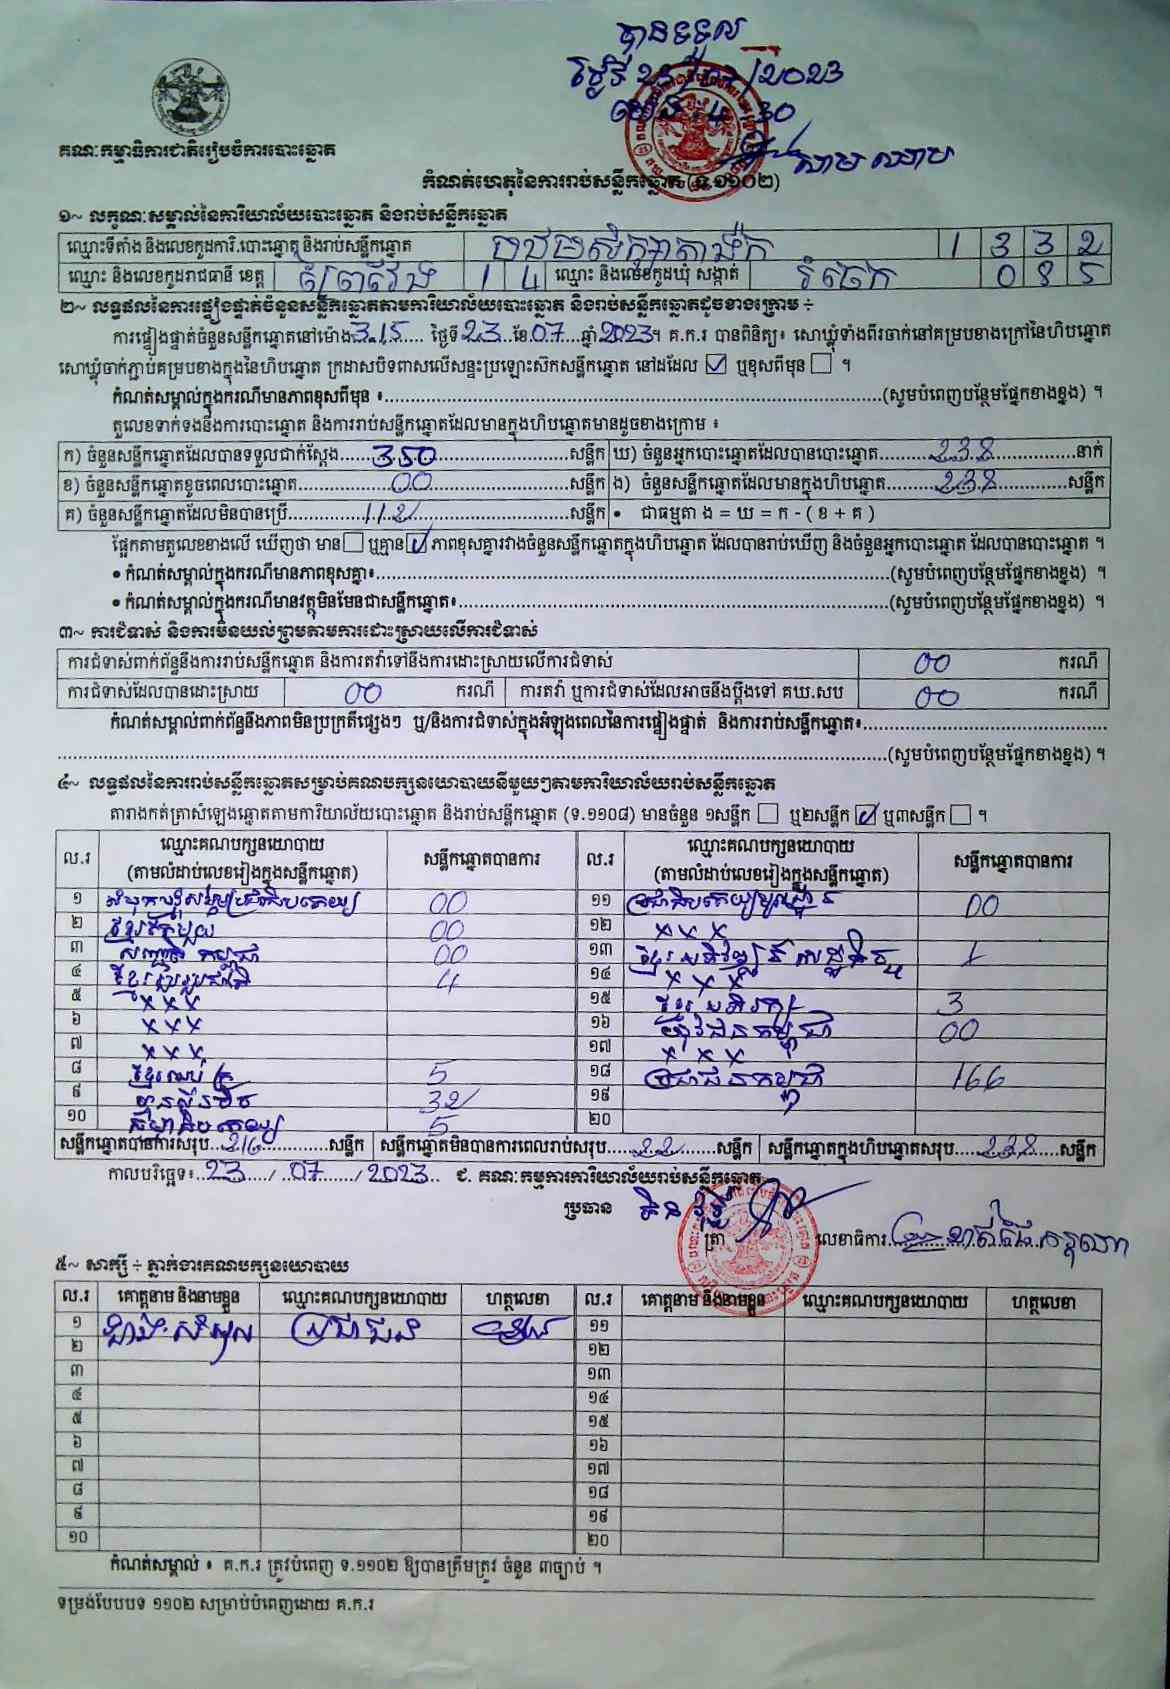 បានទទួល
ថ្ងៃទី 23/07/2023
ម៉ោង 4:30
គណៈកម្មាធិការជាតិរៀបចំការបោះឆ្នោត
កំណត់ហេតុនៃការរាប់សន្លឹកឆ្នោត (ទ.១១០២)
១~ លក្ខណៈសម្គាល់នៃការិយាល័យបោះឆ្នោត និងរាប់សន្លឹកឆ្នោត
ឈ្មោះទីតាំង និងលេខកូដការិ.បោះឆ្នោត និងរាប់សន្លឹកឆ្នោត បឋមសិក្សា 1 3 3 2
ឈ្មោះ និងលេខកូដរាជធានី ខេត្ត ព្រៃវែង 1 4 ឈ្មោះ និងលេខកូដឃុំ សង្កាត់ រំចេក 0 8 5
២~ លទ្ធផលនៃការផ្ទៀងផ្ទាត់ចំនួនសន្លឹកឆ្នោតតាមការិយាល័យបោះឆ្នោត និងរាប់សន្លឹកឆ្នោតដូចខាងក្រោម ÷
ការផ្ទៀងផ្ទាត់ចំនួនសន្លឹកឆ្នោតនៅម៉ោង 3.15 ថ្ងៃទី 23 ខែ 07 ឆ្នាំ 2023 ។ គ.ក.រ បានពិនិត្យ៖ សោឃ្លុំទាំងពីរចាក់នៅគម្របខាងក្រៅនៃហិបឆ្នោត
សោឃ្លុំចាក់ភ្ជាប់គម្របខាងក្នុងនៃហិបឆ្នោត ក្រដាសបិទពាសលើសន្ទះប្រឡោះស៊កសន្លឹកឆ្នោត នៅដដែល ☑ ឬខុសពីមុន ☐ ។
កំណត់សម្គាល់ក្នុងករណីមានភាពខុសពីមុន ៖ (សូមបំពេញបន្ថែមផ្នែកខាងខ្នង) ។
តួលេខទាក់ទងនឹងការបោះឆ្នោត និងការរាប់សន្លឹកឆ្នោតដែលមានក្នុងហិបឆ្នោតមានដូចខាងក្រោម ៖
ក) ចំនួនសន្លឹកឆ្នោតដែលបានទទួលជាក់ស្តែង 350 សន្លឹក ឃ) ចំនួនអ្នកបោះឆ្នោតដែលបានបោះឆ្នោត 238 នាក់
ខ) ចំនួនសន្លឹកឆ្នោតខូចពេលបោះឆ្នោត 00 សន្លឹក ង) ចំនួនសន្លឹកឆ្នោតដែលមានក្នុងហិបឆ្នោត 238 សន្លឹក
គ) ចំនួនសន្លឹកឆ្នោតដែលមិនបានប្រើ 112 សន្លឹក • ជាធម្មតា ង = ឃ = ក - ( ខ + គ )
ផ្អែកតាមតួលេខខាងលើ ឃើញថា មាន ☐ ឬគ្មាន ☑ ភាពខុសគ្នារវាងចំនួនសន្លឹកឆ្នោតក្នុងហិបឆ្នោត ដែលបានរាប់ឃើញ និងចំនួនអ្នកបោះឆ្នោត ដែលបានបោះឆ្នោត ។
• កំណត់សម្គាល់ក្នុងករណីមានភាពខុសគ្នា៖ (សូមបំពេញបន្ថែមផ្នែកខាងខ្នង) ។
• កំណត់សម្គាល់ក្នុងករណីមានវត្ថុមិនមែនជាសន្លឹកឆ្នោត៖ (សូមបំពេញបន្ថែមផ្នែកខាងខ្នង) ។
៣~ ការជំទាស់ និងការមិនយល់ព្រមតាមការដោះស្រាយលើការជំទាស់
ការជំទាស់ពាក់ព័ន្ធនឹងការរាប់សន្លឹកឆ្នោត និងការតវ៉ាទៅនឹងការដោះស្រាយលើការជំទាស់ 00 ករណី
ការជំទាស់ដែលបានដោះស្រាយ 00 ករណី ការតវ៉ា ឬការជំទាស់ដែលអាចនឹងប្តឹងទៅ គឃ.សប 00 ករណី
កំណត់សម្គាល់ពាក់ព័ន្ធនឹងភាពមិនប្រក្រតីផ្សេងៗ ឬ/និងការជំទាស់ក្នុងអំឡុងពេលនៃការផ្ទៀងផ្ទាត់ និងការរាប់សន្លឹកឆ្នោត៖
(សូមបំពេញបន្ថែមផ្នែកខាងខ្នង) ។
៤~ លទ្ធផលនៃការរាប់សន្លឹកឆ្នោតសម្រាប់គណបក្សនយោបាយនីមួយៗតាមការិយាល័យរាប់សន្លឹកឆ្នោត
តារាងកត់ត្រាសំឡេងឆ្នោតតាមការិយាល័យបោះឆ្នោត និងរាប់សន្លឹកឆ្នោត (ទ.១១០៨) មានចំនួន ១សន្លឹក ☐ ឬ២សន្លឹក ☑ ឬ៣សន្លឹក ☐ ។
ល.រ ឈ្មោះគណបក្សនយោបាយ (តាមលំដាប់លេខរៀងក្នុងសន្លឹកឆ្នោត) សន្លឹកឆ្នោតបានការ ល.រ ឈ្មោះគណបក្សនយោបាយ (តាមលំដាប់លេខរៀងក្នុងសន្លឹកឆ្នោត) សន្លឹកឆ្នោតបានការ
១ សំបុកឃ្មុំសង្គមប្រជាធិបតេយ្យ 00 ១១ ប្រជាធិបតេយ្យមូលដ្ឋាន 00
២ ខ្មែរតែមួយ 00 ១២ x x x
៣ សញ្ជាតិកម្ពុជា 00 ១៣ ខ្មែរអភិវឌ្ឍន៍សេដ្ឋកិច្ច 1
៤ ខ្មែររួបរួមជាតិ 4 ១៤ x x x
៥ x x x ១៥ ខ្មែរអភិរក្ស 3
៦ x x x ១៦ យុវជនកម្ពុជា 00
៧ x x x ១៧ x x x
៨ ខ្មែរឈប់ក្រ 5 ១៨ ប្រជាជនកម្ពុជា 166
៩ ហ៊្វុនស៊ិនប៉ិច 32 ១៩
១០ កម្លាំងប្រជាធិបតេយ្យ 5 ២០
សន្លឹកឆ្នោតបានការសរុប 216 សន្លឹក សន្លឹកឆ្នោតមិនបានការពេលរាប់សរុប 22 សន្លឹក សន្លឹកឆ្នោតក្នុងហិបឆ្នោតសរុប 238 សន្លឹក
កាលបរិច្ឆេទ៖ 23 / 07 / 2023 ជ. គណៈកម្មការការិយាល័យរាប់សន្លឹកឆ្នោត
ប្រធាន
ត្រា លេខាធិការ
៥~ សាក្សី ÷ ភ្នាក់ងារគណបក្សនយោបាយ
ល.រ គោត្តនាម និងនាមខ្លួន ឈ្មោះគណបក្សនយោបាយ ហត្ថលេខា ល.រ គោត្តនាម និងនាមខ្លួន ឈ្មោះគណបក្សនយោបាយ ហត្ថលេខា
១ ប្រជាជន ១១
២ ១២
៣ ១៣
៤ ១៤
៥ ១៥
៦ ១៦
៧ ១៧
៨ ១៨
៩ ១៩
១០ ២០
កំណត់សម្គាល់ ៖ គ.ក.រ ត្រូវបំពេញ ទ.១១០២ ឱ្យបានត្រឹមត្រូវ ចំនួន ៣ច្បាប់ ។
ទម្រង់បែបបទ ១១០២ សម្រាប់បំពេញដោយ គ.ក.រ